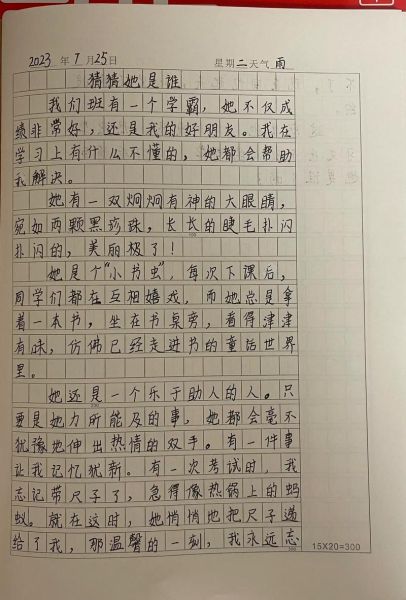 2023 年 7 月 25 日 星期 二 天气 雨
猜猜她是谁
我们班有一个学霸，她不仅成
绩非常好，还是我的好朋友。我在
学习上有什么不懂的，她都会帮助
我解决。
她有一双炯炯有神的大眼睛，
宛如两颗黑珍珠，长长的睫毛扑闪
扑闪的，美丽极了！
她是个“小书虫”，每次下课后，
同学们都在互相嬉戏，而她总是拿
着一本书，坐在书桌旁，看得津津
有味，仿佛已经走进书的童话世界
里。
她还是一个乐于助人的人。只
要是她力所能及的事，她都会毫不
犹豫地伸出热情的双手。有一件事
让我记忆犹新。有一次考试时，我
忘记带尺子了，急得像热锅上的蚂
蚁。就在这时，她悄悄地把尺子递
给了我，那温馨的一刻，我永远忘
15X20=300